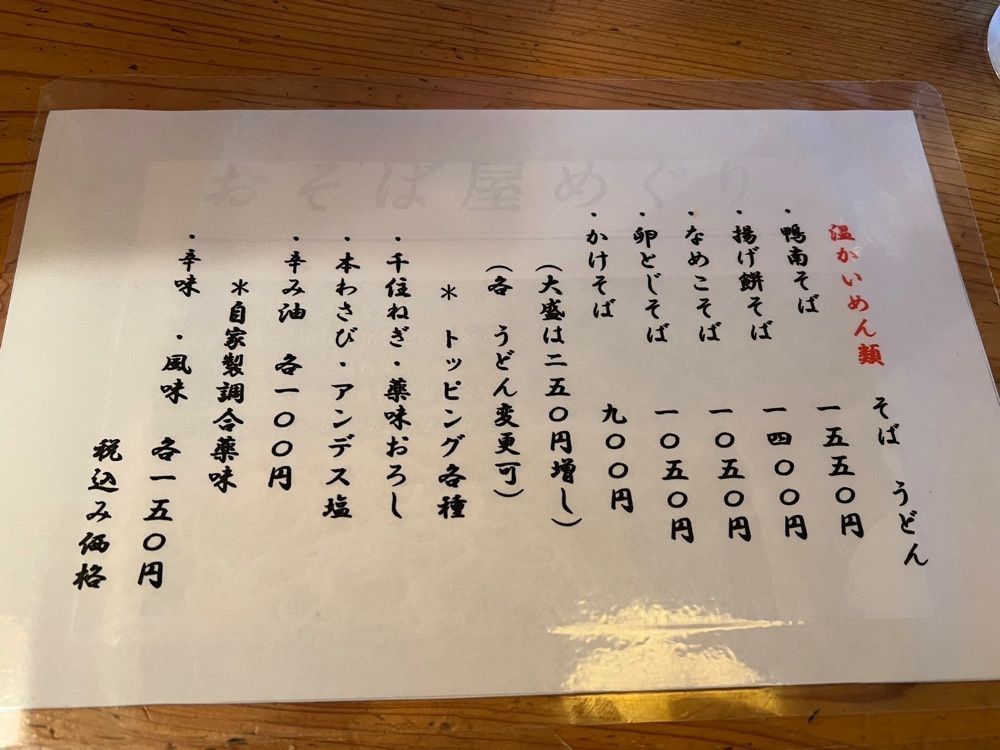 おそば屋めぐり
そば うどん
温かいめん類
・鴨南そば 一五五〇円
・揚げ餅そば 一四〇〇円
・なめこそば 一〇五〇円
・卵とじそば 一〇五〇円
・かけそば 九〇〇円
(大盛は二五〇円増し)
(各 うどん変更可)
* トッピング各種
・千住ねぎ・薬味おろし
・本わさび・アンデス塩
・辛み油 各一〇〇円
*自家製調合薬味
・辛味 ・風味 各一五〇円
税込み価格